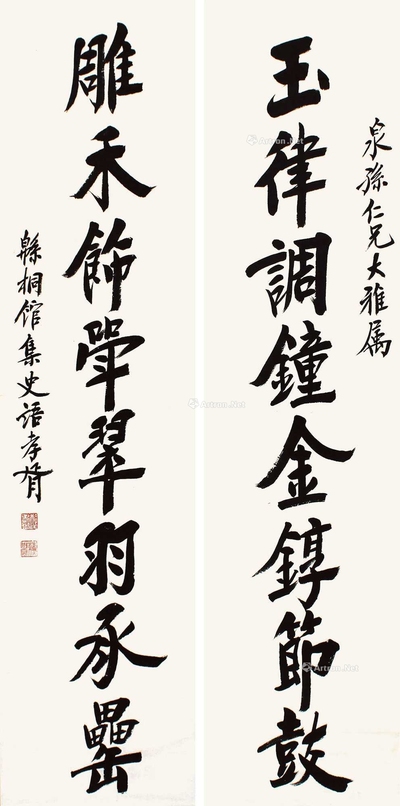 泉孫仁兄大雅属
玉律調鐘金錞節鼓
雕禾飾斝翠羽承罍
緜桐館集史語孝胥
Artron.Net